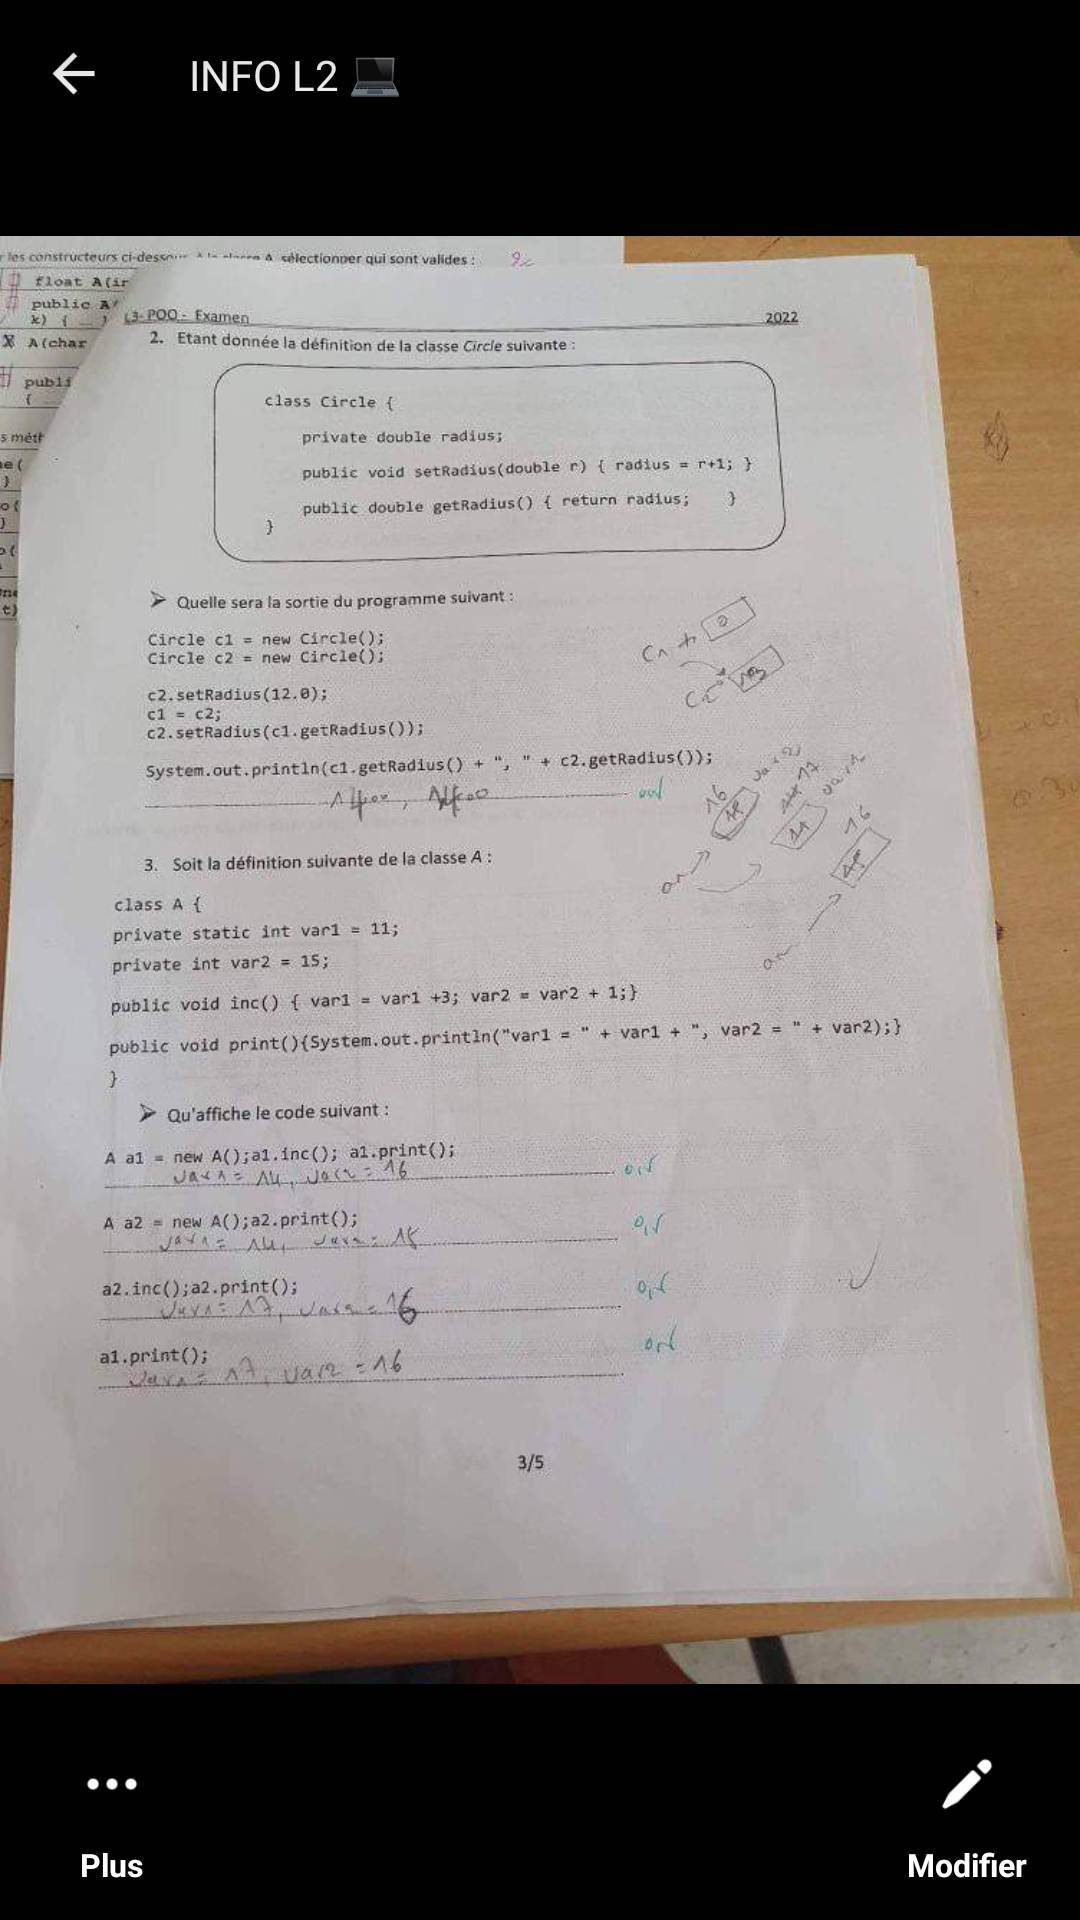 INFO L2 💻
r les constructeurs ci-dessous à la classe A sélectionner qui sont valides :
float A(ir
public A
k) { ... }
A(char
publi
{
s méth
L3- POO - Examen 2022
2. Etant donnée la définition de la classe Circle suivante :
class Circle {
private double radius;
public void setRadius(double r) { radius = r+1; }
public double getRadius() { return radius; }
}
➢ Quelle sera la sortie du programme suivant :
Circle c1 = new Circle();
Circle c2 = new Circle();
c2.setRadius(12.0);
c1 = c2;
c2.setRadius(c1.getRadius());
System.out.println(c1.getRadius() + ", " + c2.getRadius());
3. Soit la définition suivante de la classe A :
class A {
private static int var1 = 11;
private int var2 = 15;
public void inc() { var1 = var1 +3; var2 = var2 + 1;}
public void print(){System.out.println("var1 = " + var1 + ", var2 = " + var2);}
}
➢ Qu'affiche le code suivant :
A a1 = new A();a1.inc(); a1.print();
var1 = 14, var2 = 16
A a2 = new A();a2.print();
var1 = 14, var2 = 15
a2.inc();a2.print();
var1 = 17, var2 = 16
a1.print();
var1 = 17, var2 = 16
3/5
Plus
Modifier